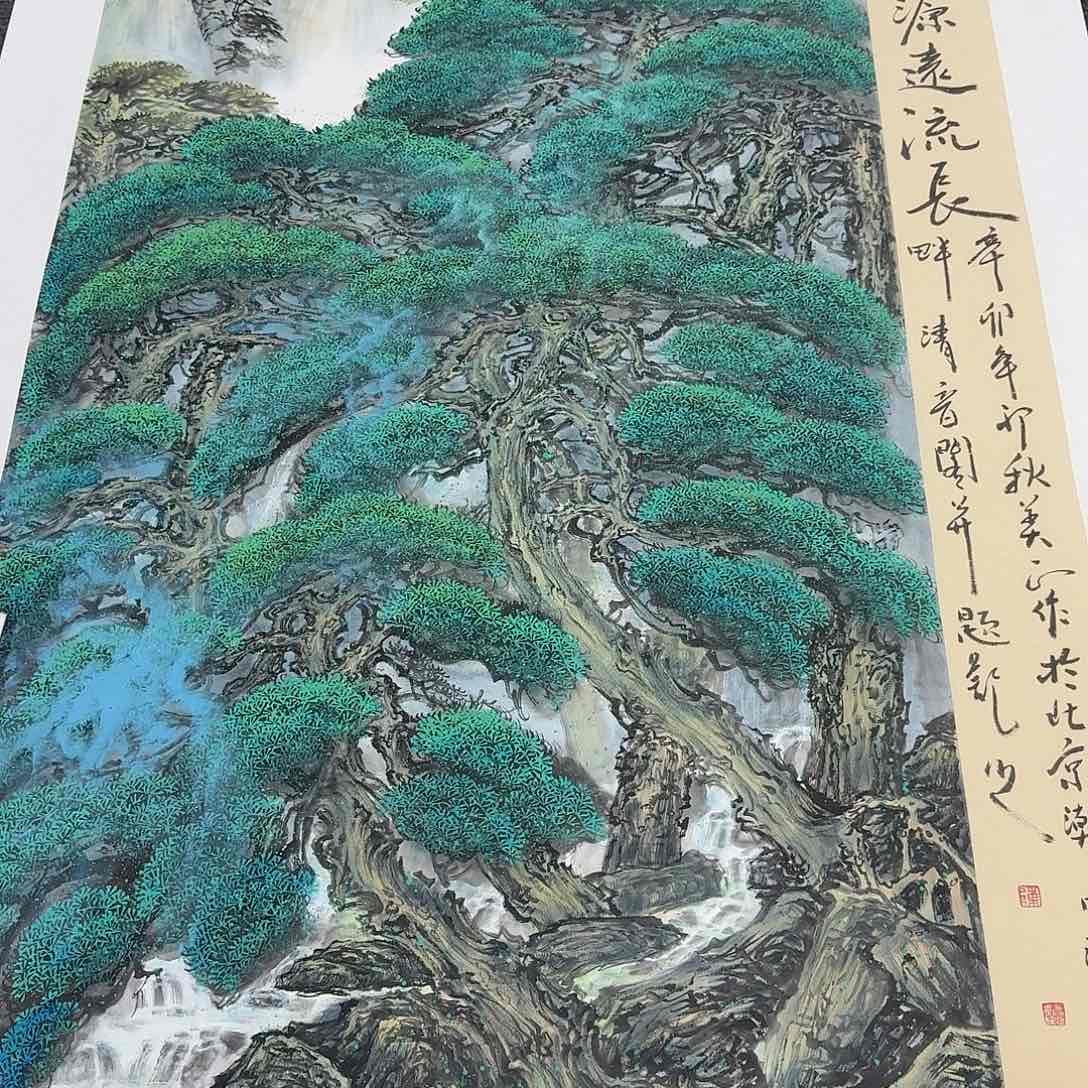 源遠流長
辛卯年初秋美正作於北京潮
畔清音閣并題